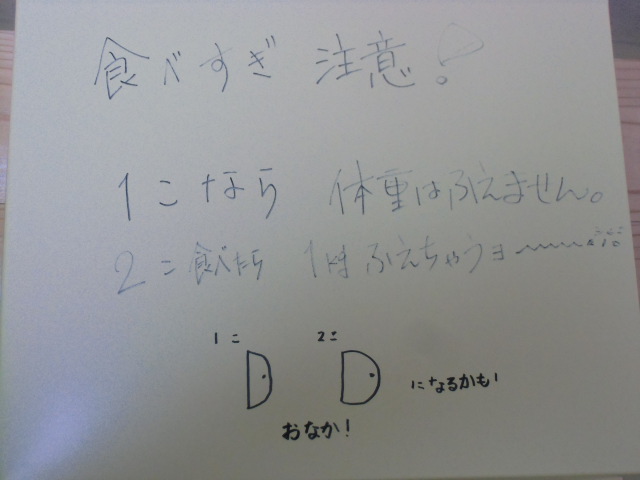 食べすぎ 注意!
1こなら 体重はふえません。
2こ食べたら 1kgふえちゃうヨ〜
1こ 2こ
になるかも!
おなか!